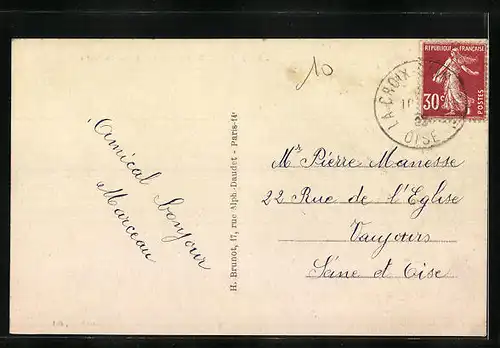 10
RÉPUBLIQUE FRANÇAISE
30c
POSTES
LA CROIX
OISE
Amical bonjour
Marceau
H. Brunot, 17, rue Alph.-Daudet - Paris-14e
Mr Pierre Manesse
22 Rue de l'Eglise
Vaujours
Seine et Oise